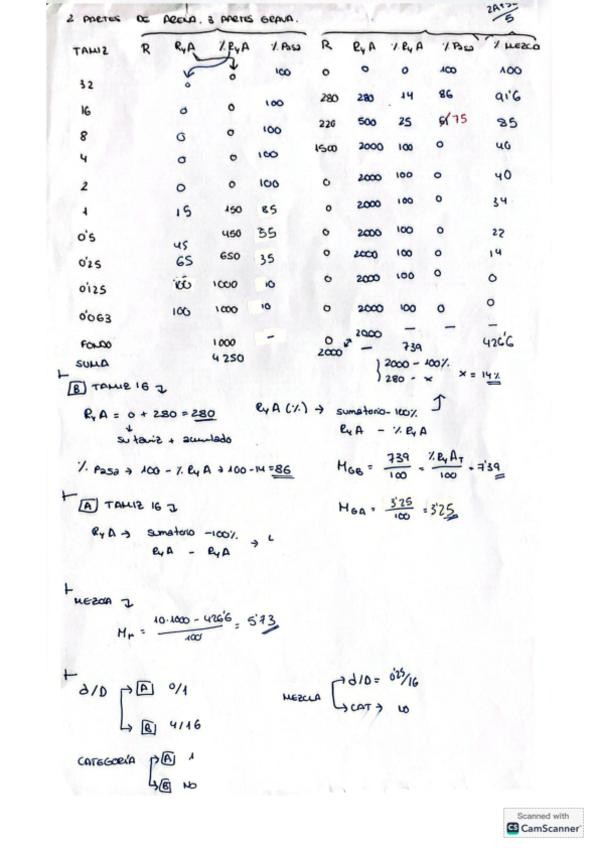 2 PARTES DE ARENA. 3 PARTES GRAVA. 2A+3G/5
TAMIZ R RyA %RyA %PASA R RyA %RyA %PASA % MEZCLA
32 0 0 100 0 0 0 100 100
16 0 0 100 280 280 14 86 91'6
8 0 0 100 220 500 25 75 85
4 0 0 100 1500 2000 100 0 40
2 0 0 100 0 2000 100 0 40
1 15 150 85 0 2000 100 0 34
0'5 45 450 55 0 2000 100 0 22
0'25 65 650 35 0 2000 100 0 14
0'125 1000 10 0 2000 100 0 0
0'063 100 1000 10 0 2000 100 0 0
FONDO 1000 - 0 2000 - - -
SUMA 4250 2000 - 739 426'6
B TAMIZ 16
2000 - 100%
280 - x x = 14%
RyA = 0 + 280 = 280
su tamiz + acumulado
RyA (%) → sumatorio - 100%
RyA - % RyA
% Pasa → 100 - % RyA → 100 - 14 = 86
MGB = 739/100 = %RyAT/100 = 7'39
A TAMIZ 16
MGA = 3'25/100 = 3'25
RyA → sumatorio - 100%
RyA - RyA
MEZCLA
= 10·1000 - 426'6/100 = 5'73
d/D A 0/1
B 4/16
MEZCLA d/D = 0'25/16
CAT →
CATEGORÍA A 1
B NO
Scanned with
CS CamScanner